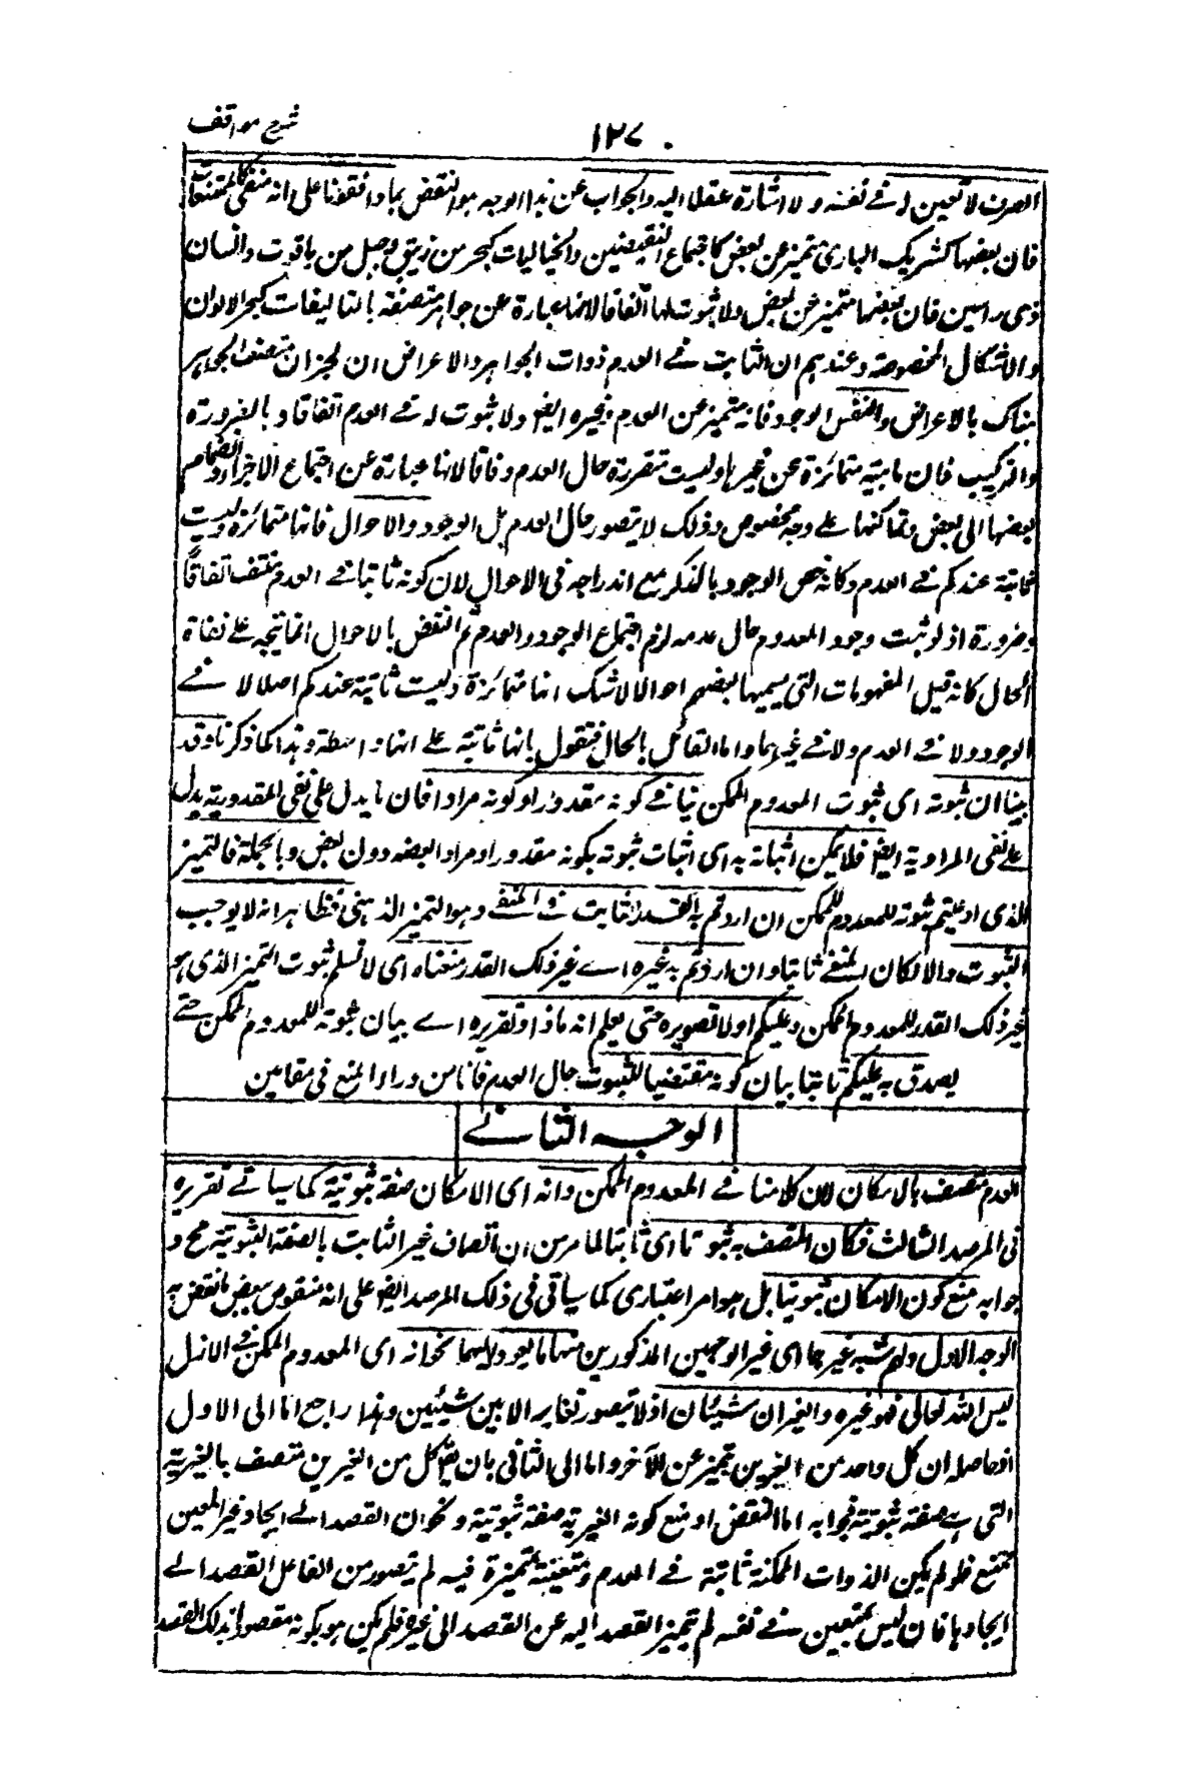 شرح مواقف
١٢٧
الصرف لا تعين له في نفسه ولا اشارة عقلا اليه والجواب عن هذا الوجه هو النقض بما وافقونا على انه منفي كالممتنعات
فان بعضها كشريك الباري متميز عن بعض كاجتماع النقيضين والخياليات كبحر من زيبق وجبل من ياقوت وانسان
ذي راسين فان بعضها متميز عن بعض ولا ثبوت لها اتفاقا لانها عبارة عن جواهر متصفة بالتاليفات كبحر الالوان
والاشكال المخصوصة وعندهم ان الثابت في العدم ذوات الجواهر والاعراض من غير ان يتصف الجواهر
هناك بالاعراض والنفس الوجود فانه متميز عن العدم وغيره ايضا ولا ثبوت له في العدم اتفاقا وبالضرورة
والتركيب فان ماهيته متمائزة عن غيرها وليست متقررة حال العدم وفاقا لانها عبارة عن اجتماع الاجزاء وانضمام
بعضها الى بعض وتماسكها على وجه مخصوص وذلك لا يتصور حال العدم بل الوجود والاحوال فانها متمائزة وليست
ثابتة عندكم في العدم وكانه خص الوجود بالذكر مع اندراجه في الاحوال لان كونه ثابتا في العدم منتف اتفاقاً
وضرورة اذ لو ثبت وجود المعدوم حال عدمه لزم اجتماع الوجود والعدم ثم النقض بالاحوال انما يتجه على نفاة
الحال كانه قيل المفهومات التي يسميها بعضهم احوالا لا شك انها متمائزة وليست ثابتة عندكم اصلا لا في
الوجود ولا في العدم ولا في غيرهما واما القائل بالحال فيقول بانها ثابتة على انها واسطة وهذا كما ذكرنا وقد
بينا ان ثبوته اي ثبوت المعدوم الممكن ينافي كونه مقدورا وكونه مرادا فان ما يدل على نفي المقدورية يدل
على نفي المرادية ايضا فلا يمكن اثباته به اي اثبات ثبوته بكونه مقدورا ومرادا بعضه دون بعض وبالجملة فالتميز
الذي ادعيتم ثبوته للمعدوم الممكن ان اردتم به القدر الثابت في المنفي وهو التميز الذهني فظاهر انه لا يوجب
الثبوت والا لكان المنفي ثابتا وان اردتم به غيره اي غير ذلك القدر منعناه اي لا نسلم ثبوت التميز الذي هو
غير ذلك القدر للمعدوم الممكن وعليكم اولا تصويره حتى يعلم انه ماذا وتقريره اي بيان ثبوته للمعدوم الممكن حتى
يصدق به عليكم ثانيا بيان كونه مقتضيا للثبوت حال العدم فانا من وراء المنع في مقامين
الوجه الثاني
المعدوم متصف بالامكان لان كلامنا في المعدوم الممكن وانه اي الامكان صفة ثبوتية كما سياتي تقريره
في المرصد الثالث فكان المتصف به ثبوتا اي ثابتا لما مر من ان اتصاف غير الثابت بالصفة الثبوتية مح و
جوابه منع كون الامكان ثبوتيا بل هو امر اعتباري كما سياتي في ذلك المرصد ايضا على انه منقوض ببعض ما نقض به
الوجه الاول ولهم شبه غيرهما اي غير الوجهين المذكورين منها ما يعود اليهما نحو انه اي المعدوم الممكن في الازل
ليس الله تعالى فهو غيره والغيران شيئان اذ لا يتصور تغاير الا بين شيئين وهذا راجع اما الى الاول
اذ حاصله ان كل واحد من الغيرين متميز عن الآخر واما الى الثاني بان يقال كل من الغيرين متصف بالغيرية
التي هي صفة ثبوتية فجوابه اما النقض او منع كونه الغيرية صفة ثبوتية ونحو ان القصد الى ايجاد غير المعين
ممتنع فلو لم يكن الذوات الممكنة ثابتة في العدم ومتعينة متميزة فيه لم يتصور من الفاعل القصد الى
ايجادها فان ليس بمتعين في نفسه لم يتميز القصد اليه عن القصد الى غيره فلم يكن هو بكونه مقصودا بذلك القصد